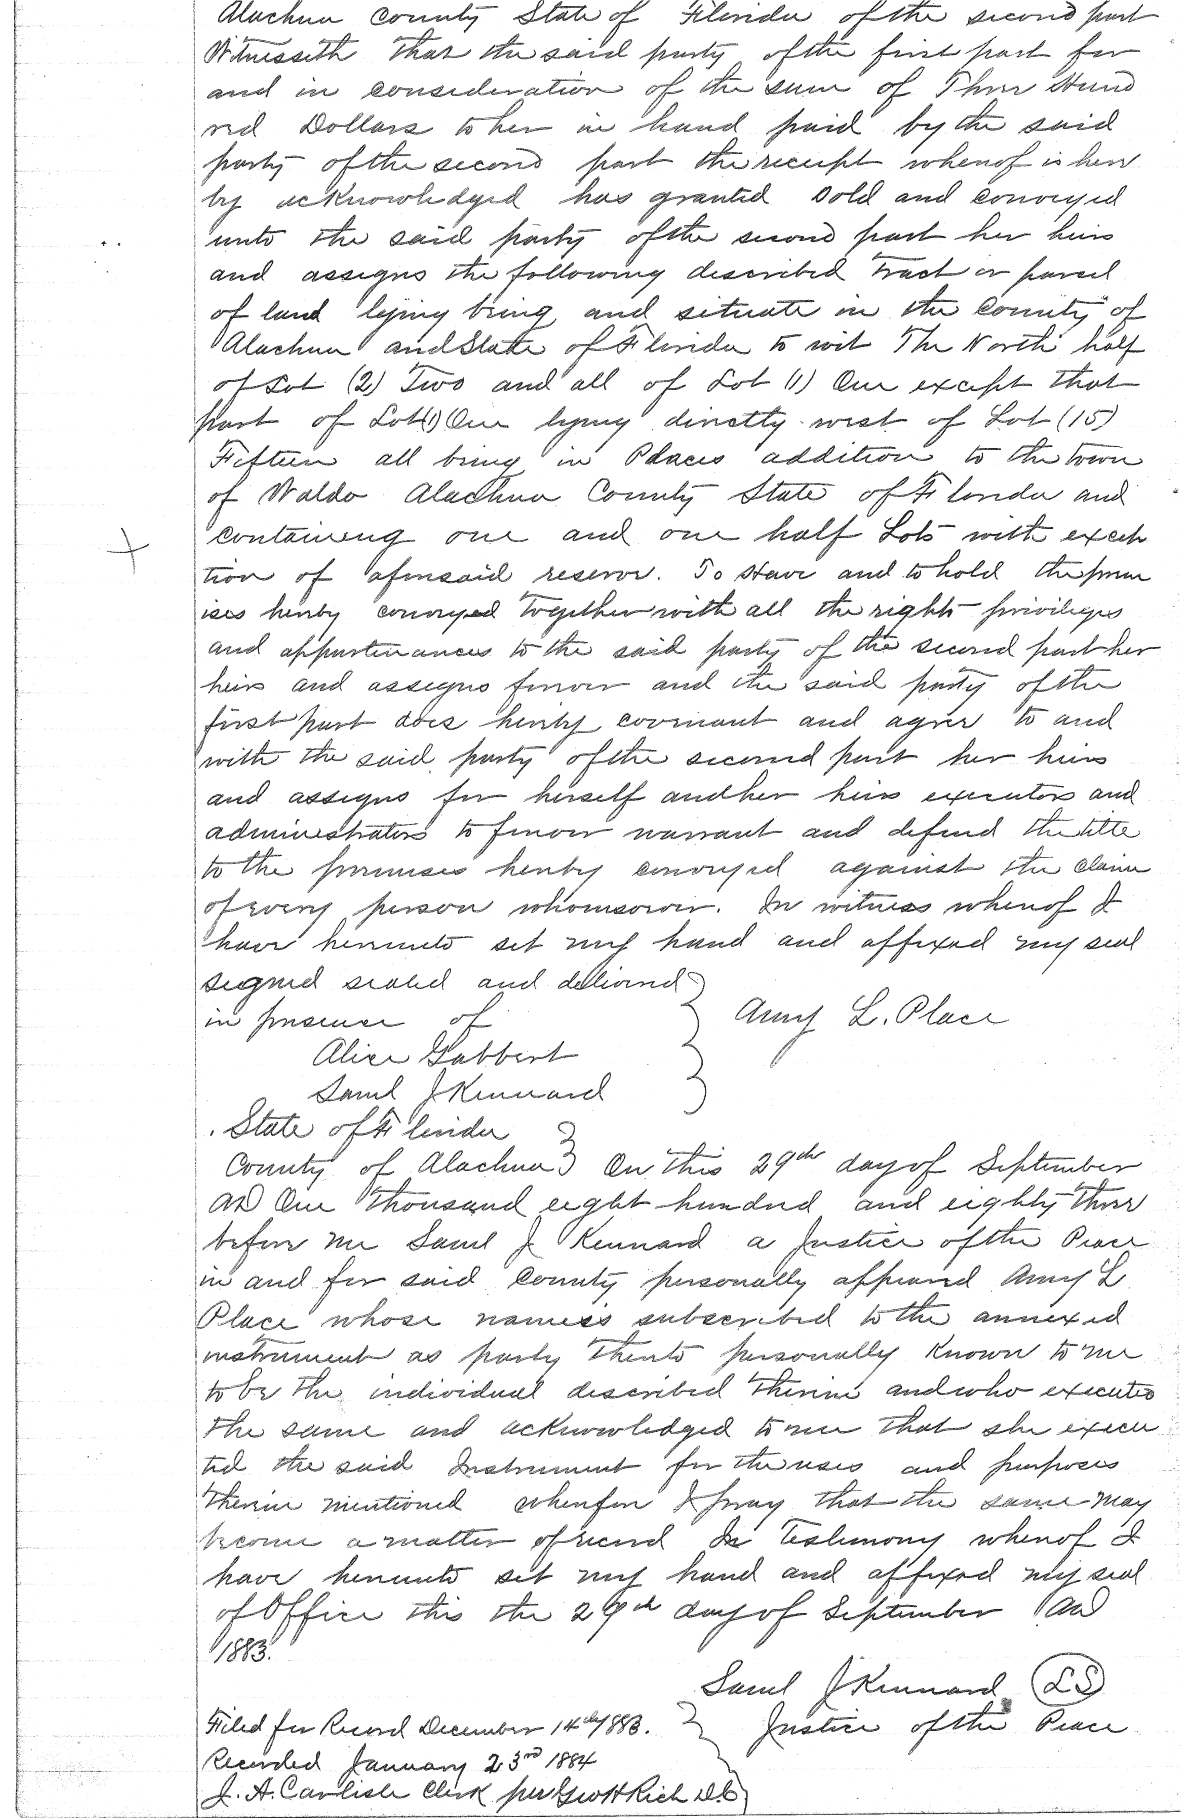 Alachua County State of Florida of the second part
Witnesseth that the said party of the first part for
and in consideration of the sum of Three Hund
red Dollars to her in hand paid by the said
party of the second part the receipt whereof is here
by acknowledged has granted Sold and conveyed
unto the said party of the second part her heirs
and assigns the following described tract or parcel
of land lying being and situate in the County of
Alachua and State of Florida to wit The North half
of Lot (2) Two and all of Lot (1) One except that
part of Lot (1) One lying directly west of Lot (15)
Fifteen all being in Places addition to the town
of Waldo Alachua County State of Florida and
containing one and one half Lots with excep
tion of aforesaid reserve. To Have and to hold the prem
ises hereby conveyed together with all the rights privileges
and appurtenances to the said party of the second part her
heirs and assigns forever and the said party of the
first part does hereby covenant and agree to and
with the said party of the second part her heirs
and assigns for herself and her heirs executors and
administrators to forever warrant and defend the title
to the premises hereby conveyed against the claim
of every person whomsoever. In witness whereof I
have hereunto set my hand and affixed my seal
signed sealed and delivered
in presence of Amy L. Place
Alice Gabbert
Saml J Kennard
State of Florida
County of Alachua On this 29th day of September
AD One thousand eight hundred and eighty three
before me Saml J Kennard a Justice of the Peace
in and for said County personally appeared Amy L
Place whose name is subscribed to the annexed
instrument as party thereto personally Known to me
to be the individual described therein and who executed
the same and acknowledged to me that she execu
ted the said Instrument for the uses and purposes
therein mentioned wherefore I pray that the same may
become a matter of record In Testimony whereof I
have hereunto set my hand and affixed my seal
of Office this the 29th day of September AD
1883.
Saml J Kennard LS
Filed for Record December 14th 1883. Justice of the Peace
Recorded January 23rd 1884
J. A. Carlisle Clerk per Geo H Rich D.C